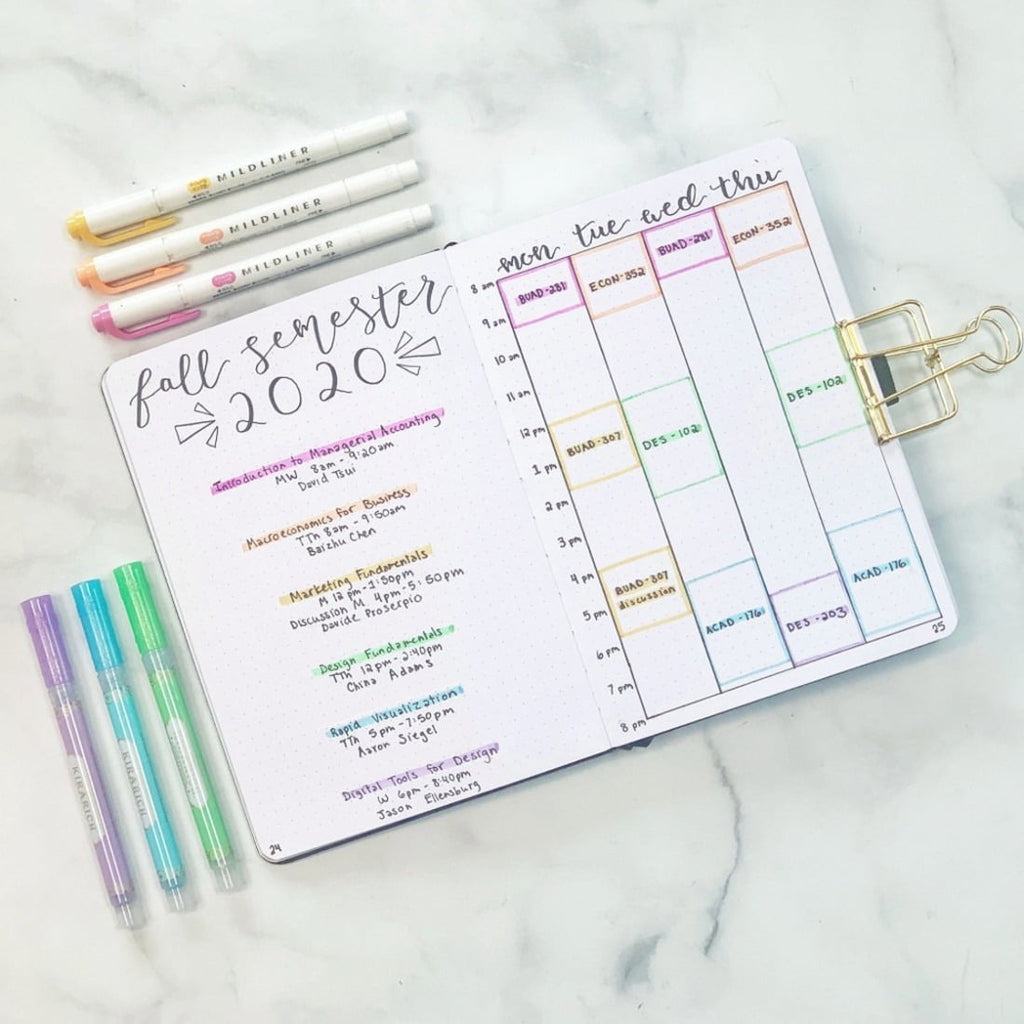 MILDLINER
MILDLINER
MILDLINER
fall semester
2020
Introduction to Managerial Accounting
MW 8am - 9:20am
David Tsui
Macroeconomics for Business
TTh 8am - 9:50am
Baizhu Chen
Marketing Fundamentals
M 12pm - 1:50pm
Discussion M 4pm - 5:50pm
Davide Proserpio
Design Fundamentals
TTh 12pm - 2:40pm
China Adams
Rapid Visualization
TTh 5pm - 7:50pm
Aaron Siegel
Digital Tools for Design
W 6pm - 8:40pm
Jason Ellensburg
24
mon tue wed thu
8 am
9 am
10 am
11 am
12 pm
1 pm
2 pm
3 pm
4 pm
5 pm
6 pm
7 pm
8 pm
BUAD-281
BUAD-307
BUAD-307
discussion
ECON-352
DES-102
ACAD-176
BUAD-281
DES-203
ECON-352
DES-102
ACAD-176
25
KIRARICH
KIRARICH